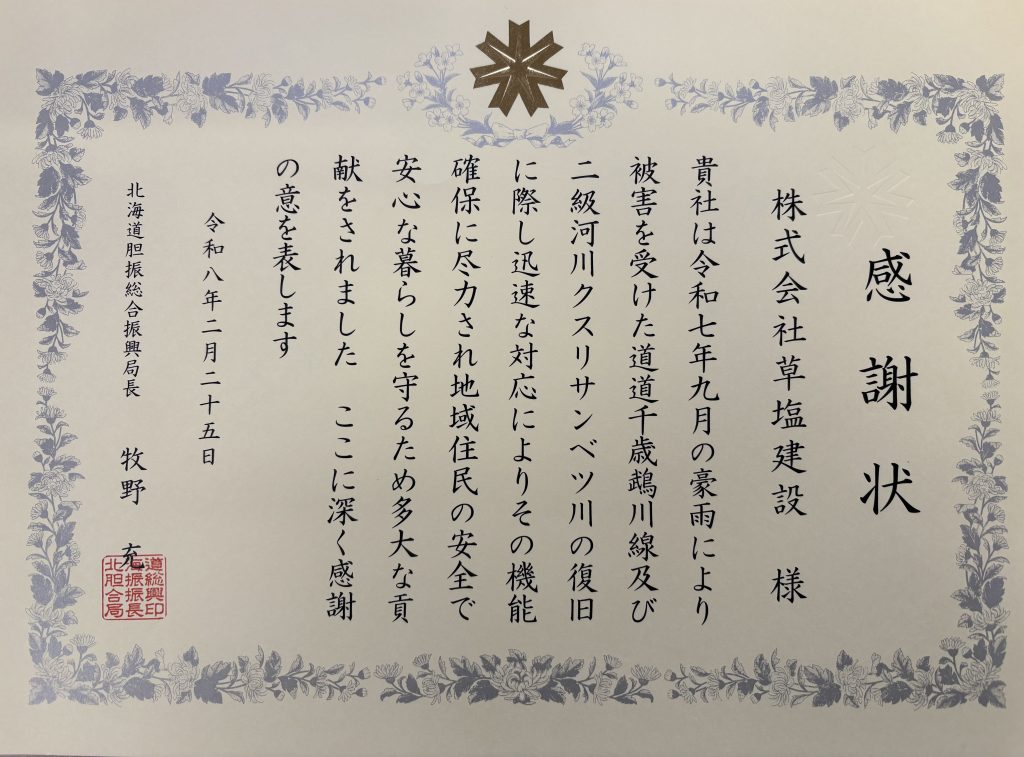 感謝状
株式会社草塩建設 様
貴社は令和七年九月の豪雨により
被害を受けた道道千歳鵡川線及び
二級河川クスリサンベツ川の復旧
に際し迅速な対応によりその機能
確保に尽力され地域住民の安全で
安心な暮らしを守るため多大な貢
献をされました ここに深く感謝
の意を表します
令和八年二月二十五日
北海道胆振総合振興局長 牧野 充
道総興印
海振振長
北胆合局